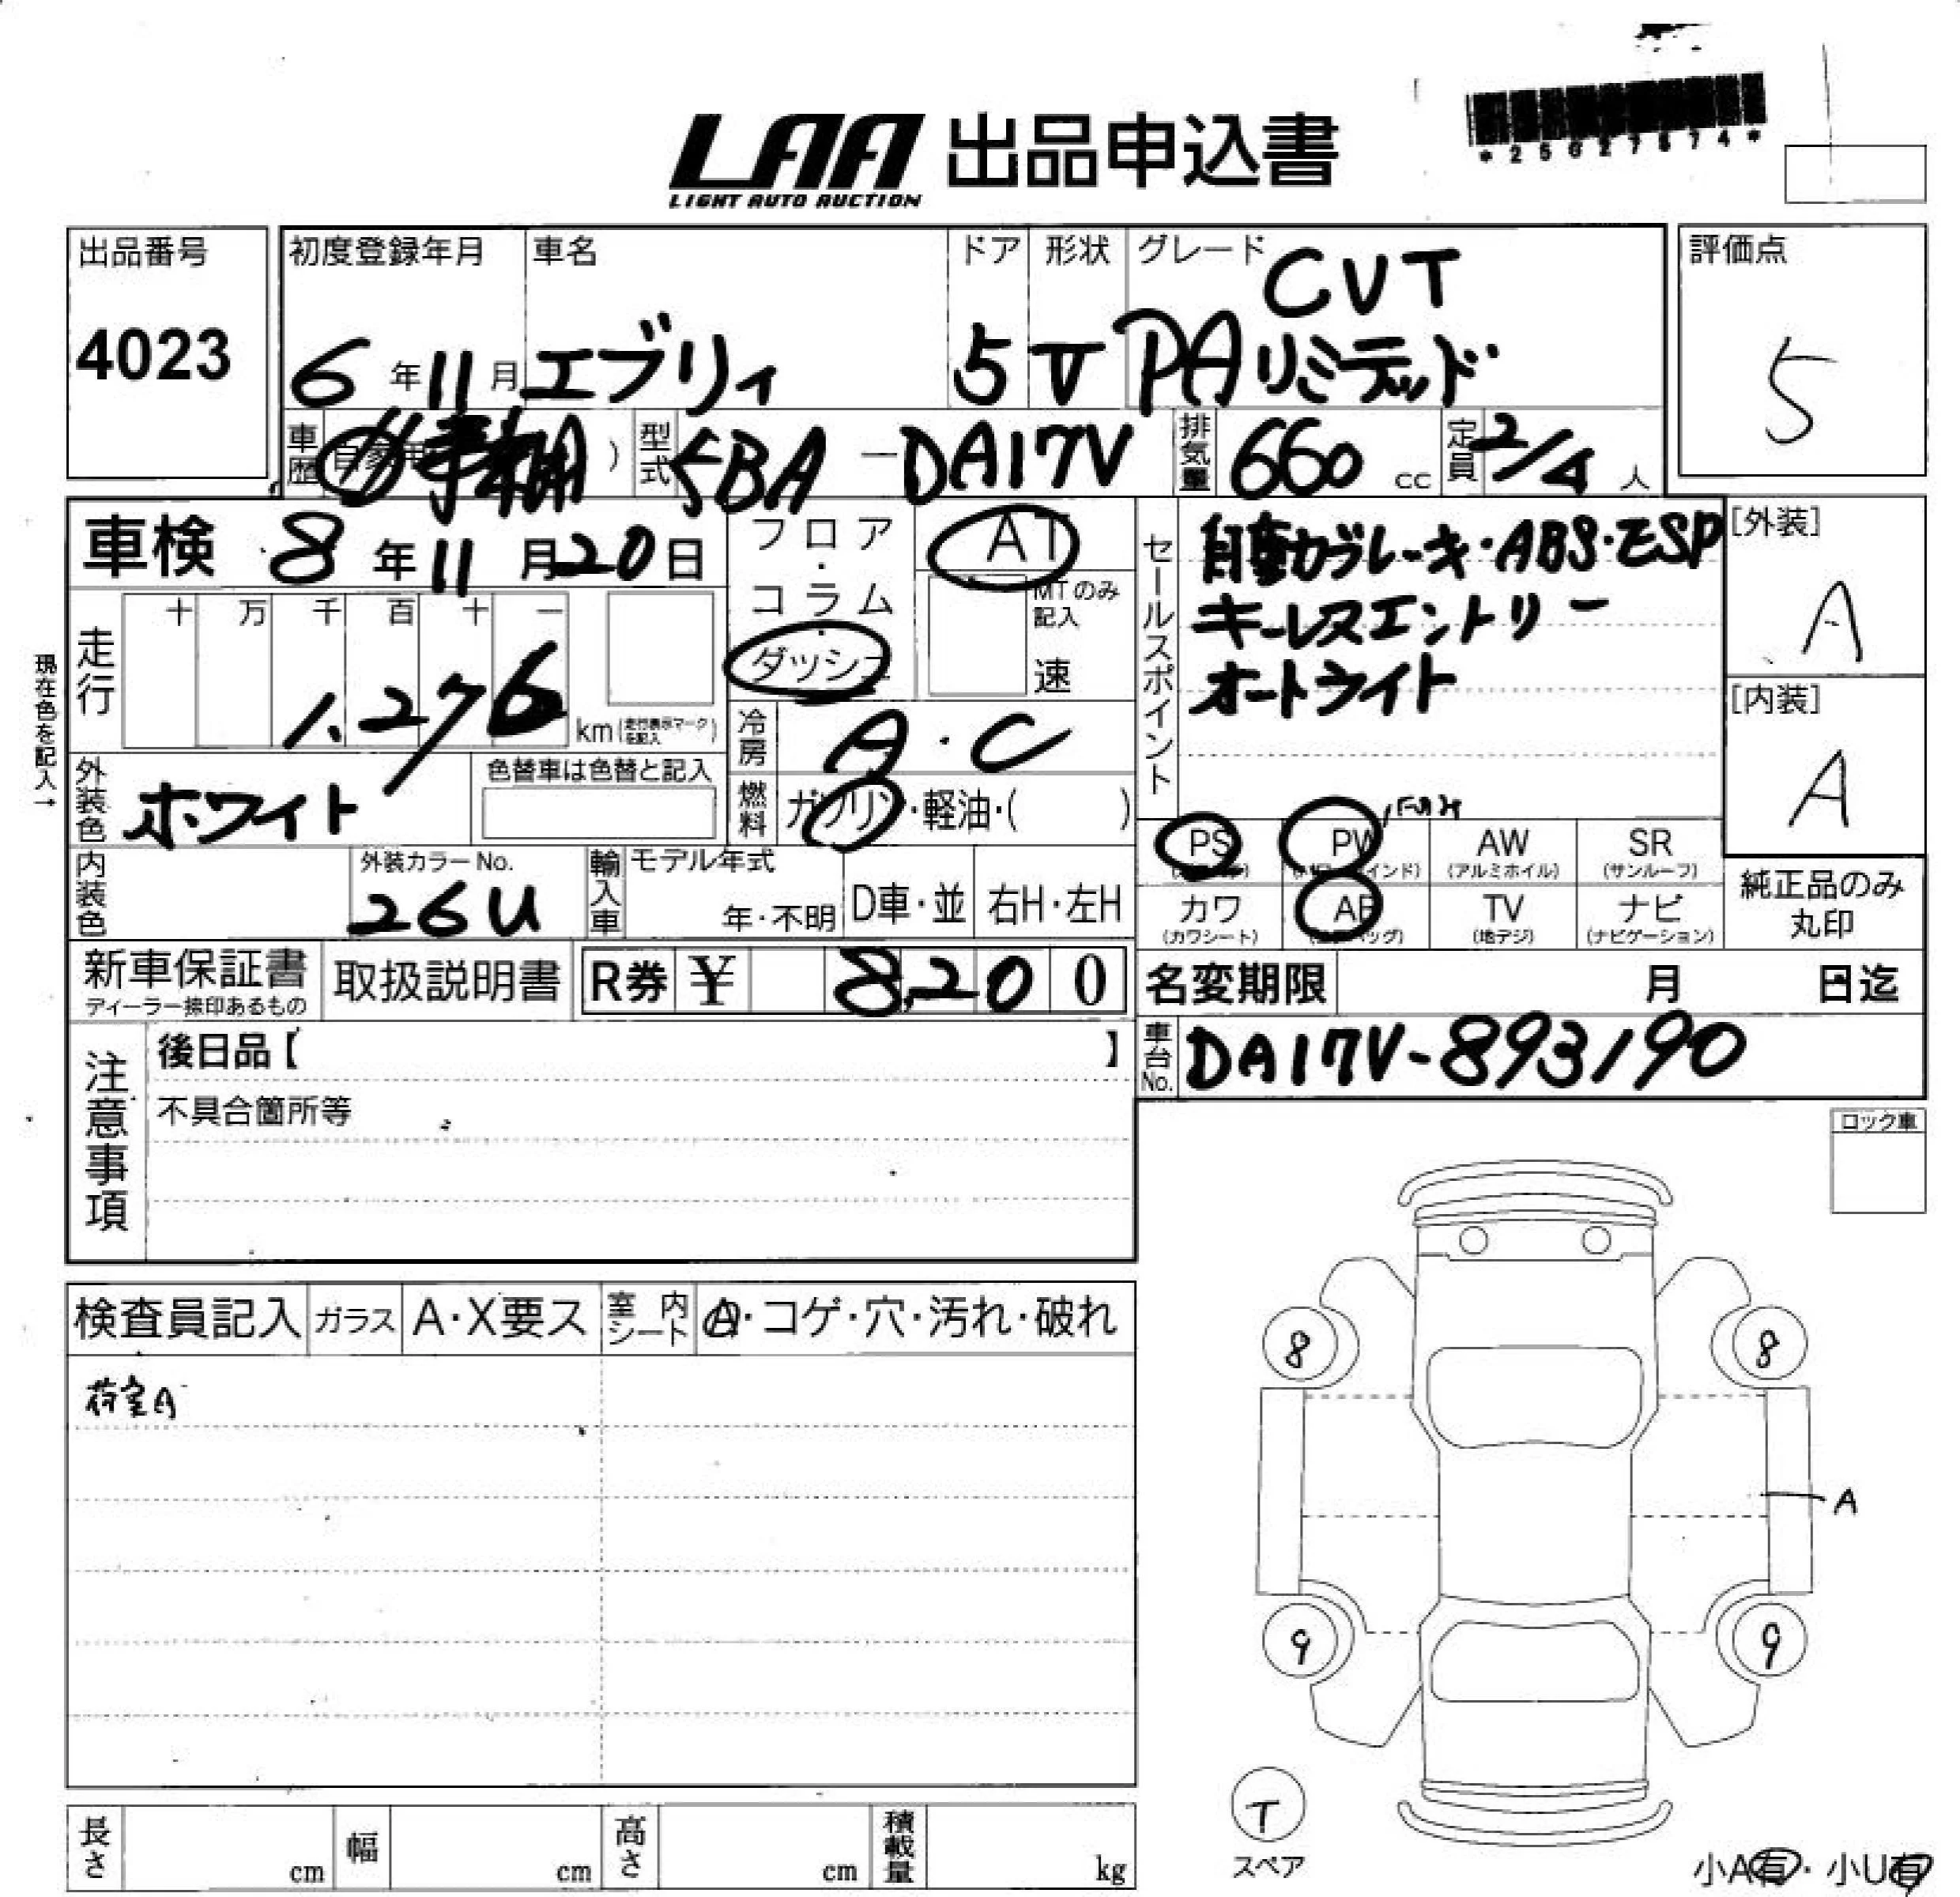 LAA 出品申込書
LIGHT AUTO AUCTION
出品番号
4023
初度登録年月
6年11月
車名
エブリィ
ドア
5
形状
V
グレード
CVT
PAリミテッド
評価点
5
車歴
)
型式
5BA-DA17V
排気量
660 cc
定員
2/4 人
車検 8年11月20日
フロア・コラム・ダッシュ
AT
MTのみ記入
速
現在色を記入→
走行
十 万 千 百 十 一
1.276
km(走行表示マークを記入)
冷房
A・C
外装色
ホワイト
色替車は色替と記入
燃料
ガソリン・軽油・( )
内装色
外装カラーNo.
26U
輸入車
モデル年式
年・不明
D車・並
右H・左H
セールスポイント
自動ブレーキ・ABS・ESP
キーレスエントリー
オートライト
[外装]
A
[内装]
A
PS PW AW SR
(アルミホイル) (サンルーフ)
カワ AB TV ナビ
(カワシート) (エアバッグ) (地デジ) (ナビゲーション)
純正品のみ
丸印
新車保証書
ディーラー捺印あるもの
取扱説明書
R券 ¥ 8,200
名変期限 月 日迄
車台No.
DA17V-893190
注意事項
後日品【 】
不具合箇所等
ロック車
検査員記入
ガラス
A・X要ス
室内シート
A・コゲ・穴・汚れ・破れ
荷室A
8
8
A
9
9
T
スペア
小A有・小U有
長さ cm
幅 cm
高さ cm
積載量 kg